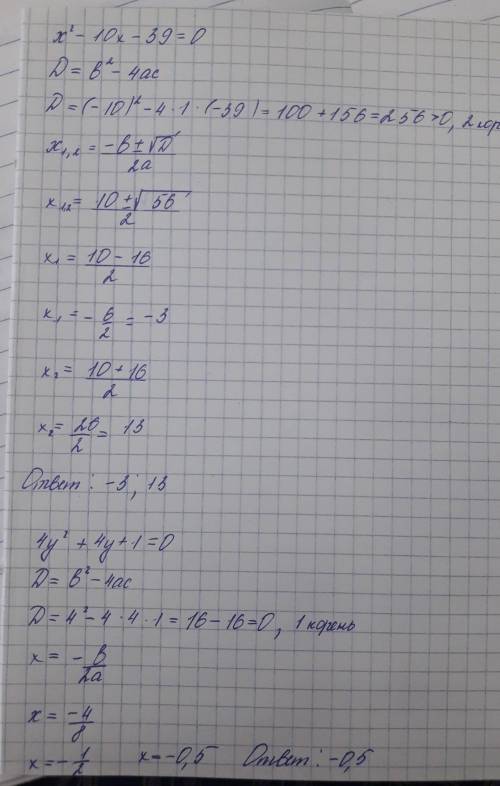 x² - 10x - 39 = 0
D = b² - 4ac
D = (-10)² - 4 · 1 · (-39) = 100 + 156 = 256 > 0, 2 кор
x₁,₂ = (-b ± √D) / 2a
x₁₂ = (10 ± √ 56) / 2
x₁ = (10 - 16) / 2
x₁ = - 6/2 = -3
x₂ = (10 + 16) / 2
x₂ = 26/2 = 13
Ответ: -3; 13
4y² + 4y + 1 = 0
D = b² - 4ac
D = 4² - 4 · 4 · 1 = 16 - 16 = 0, 1 корень
x = - b/2a
x = -4/8
x = - 1/2 x = -0,5 Ответ: -0,5